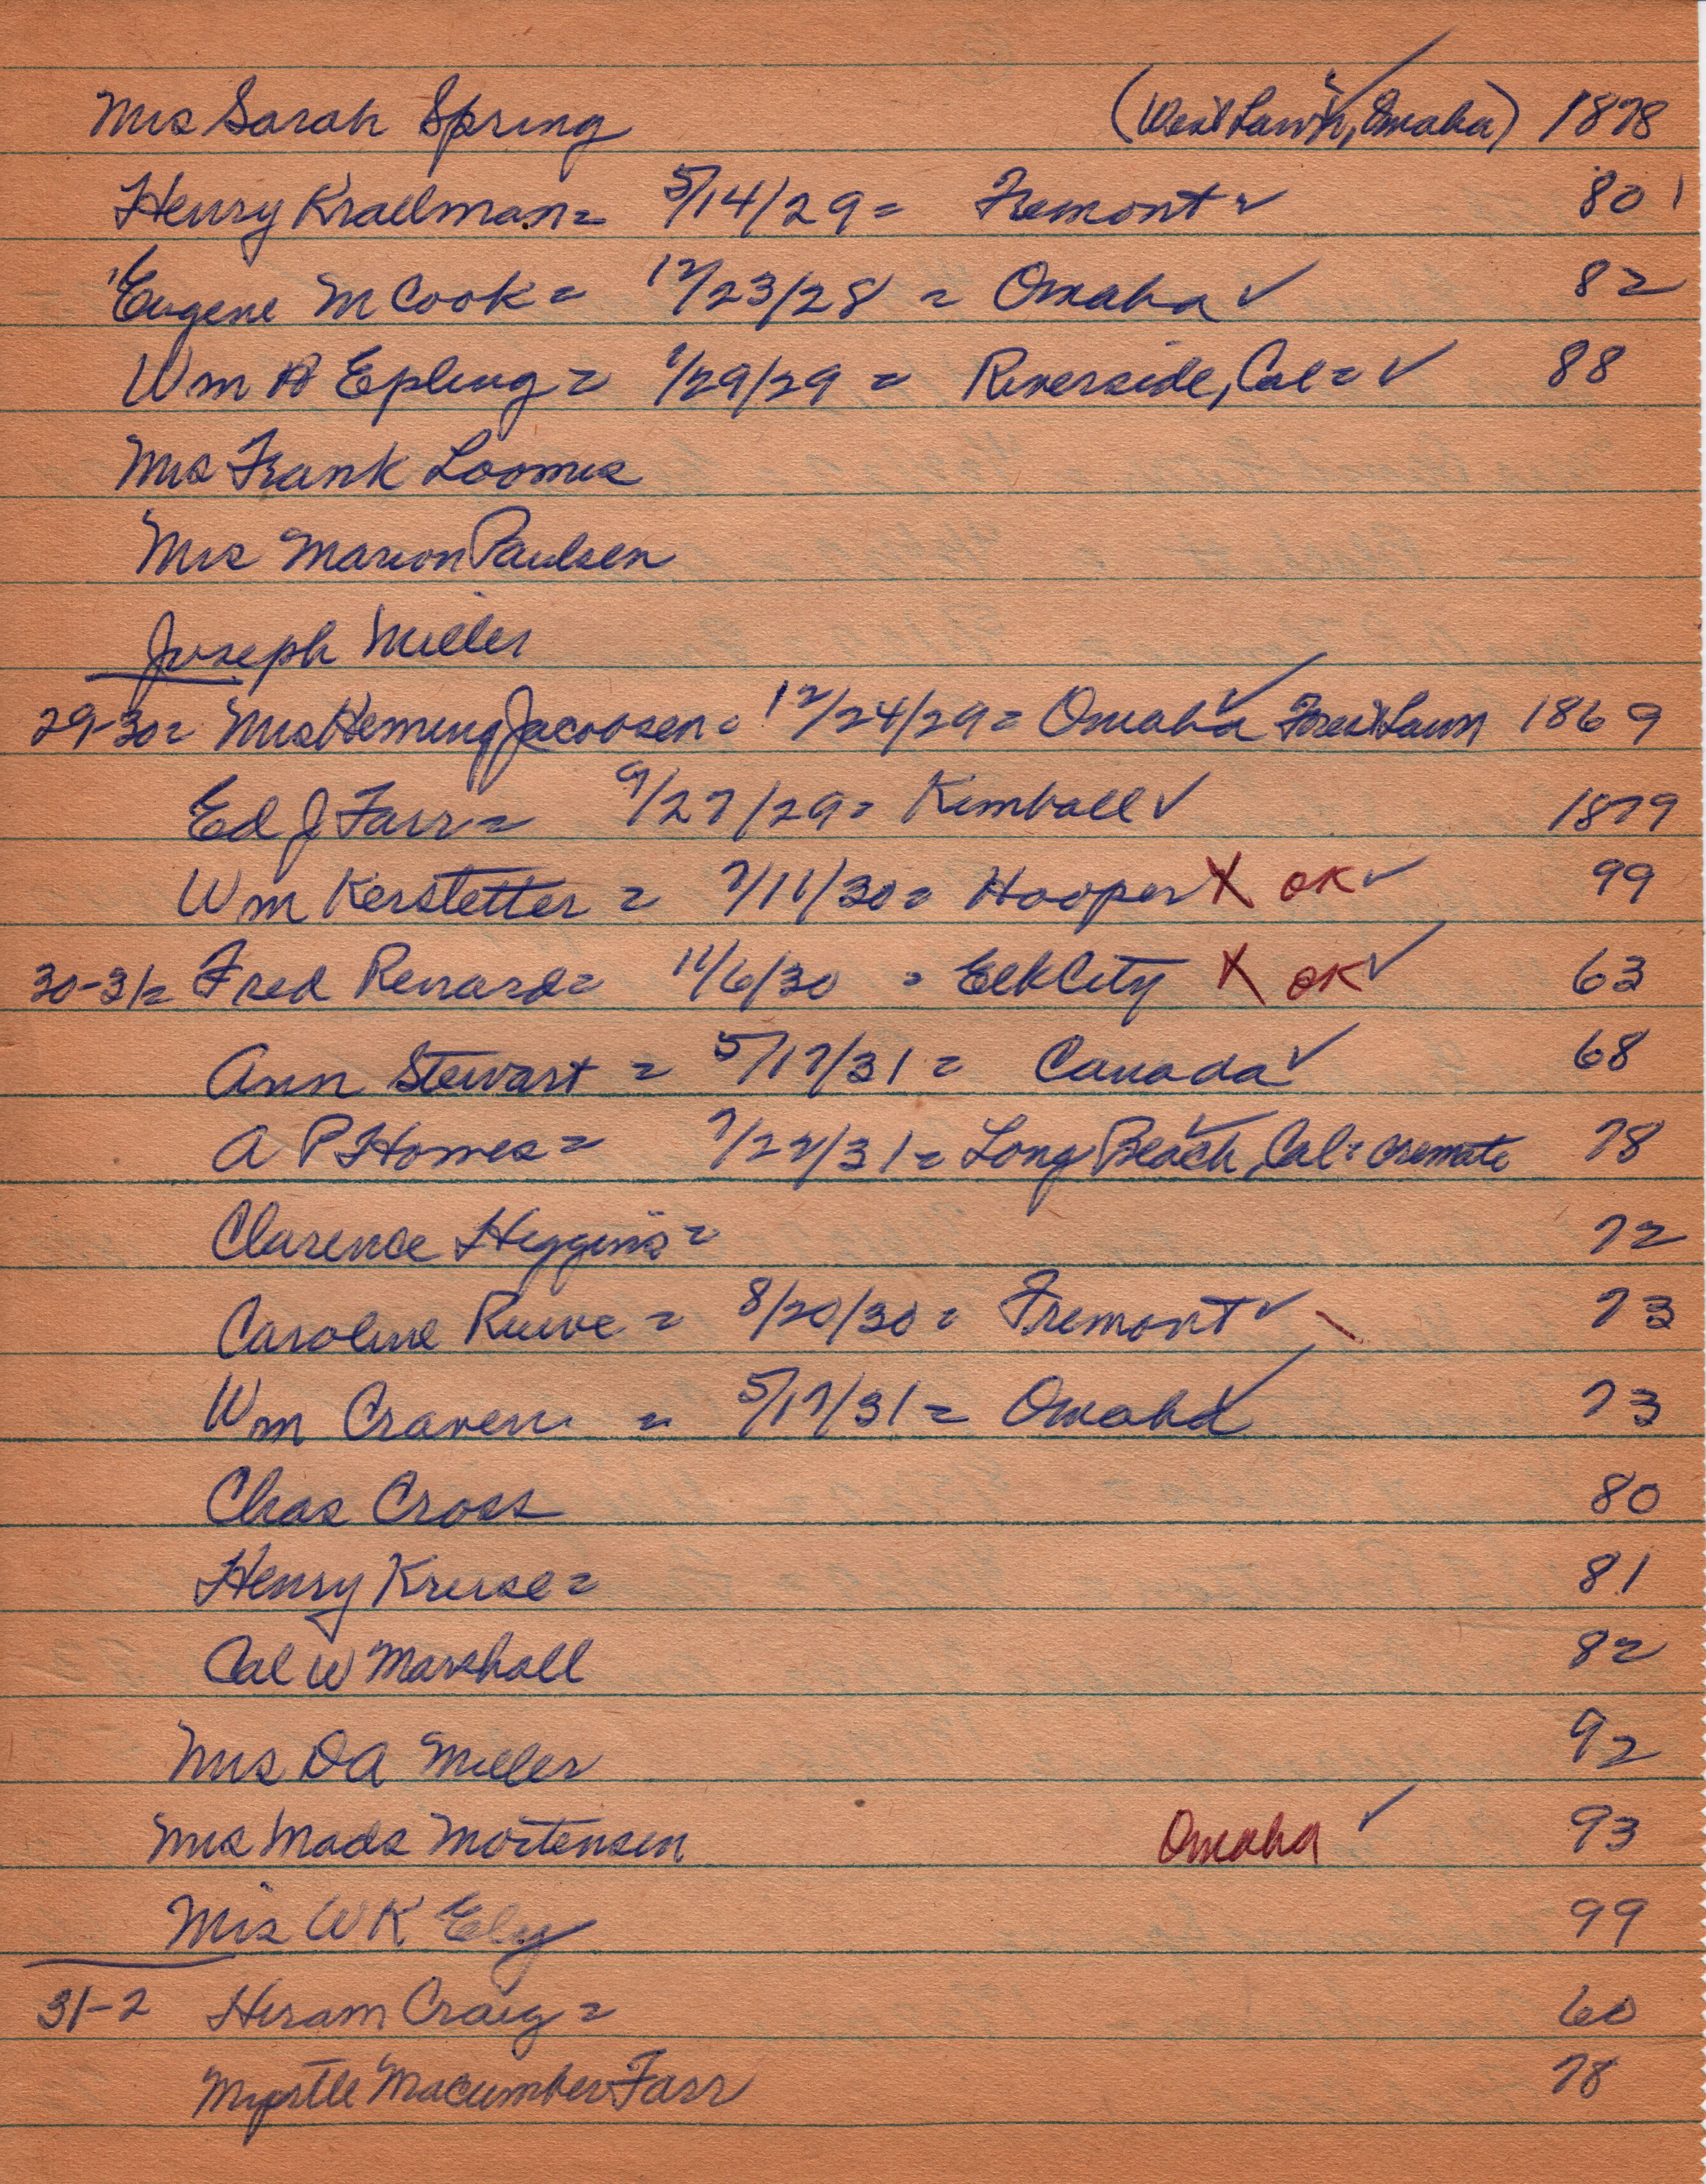 Mrs Sarah Spring (West Lawn, Omaha) ✓ 1878
Henry Kraelman = 5/14/29 = Fremont ✓ 80
Eugene M Cook = 12/23/28 = Omaha ✓ 82
Wm A Epling = 1/29/29 = Riverside, Cal = ✓ 88
Mrs Frank Loomis
Mrs Marion Paulsen
Joseph Miller
29-30 = Mrs Heming Jacobsen = 12/24/29 = Omaha ✓ Forest Lawn 1869
Ed J Farr = 9/27/29 = Kimball ✓ 1879
Wm Kerstetter = 7/11/30 = Hooper X OK ✓ 99
30-31 = Fred Renard = 11/6/30 = Elk City X OK ✓ 63
Ann Stewart = 5/17/31 = Canada ✓ 68
A P Homes = 7/22/31 = Long Beach, Cal = cremate ✓ 78
Clarence Higgins = 72
Caroline Ruwe = 8/20/30 = Fremont ✓ \ 73
Wm Craven = 5/17/31 = Omaha ✓ 73
Chas Cross 80
Henry Kruse = 81
Cal W Marshall 82
Mrs D A Miller 92
Mrs Mads Mortensen Omaha ✓ 93
Mrs W K Ely 99
31-2 Hiram Craig = 60
Myrtle Macumber Farr 78